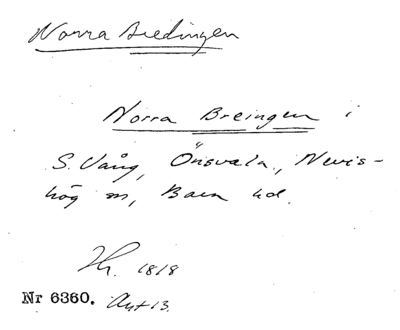 Norra Bredingen
Norra Breingen i
S. Vång, Önsvala, Nevis-
hög m, Bara hd.
Hr. 1818
Nr 6360. Aut 13.